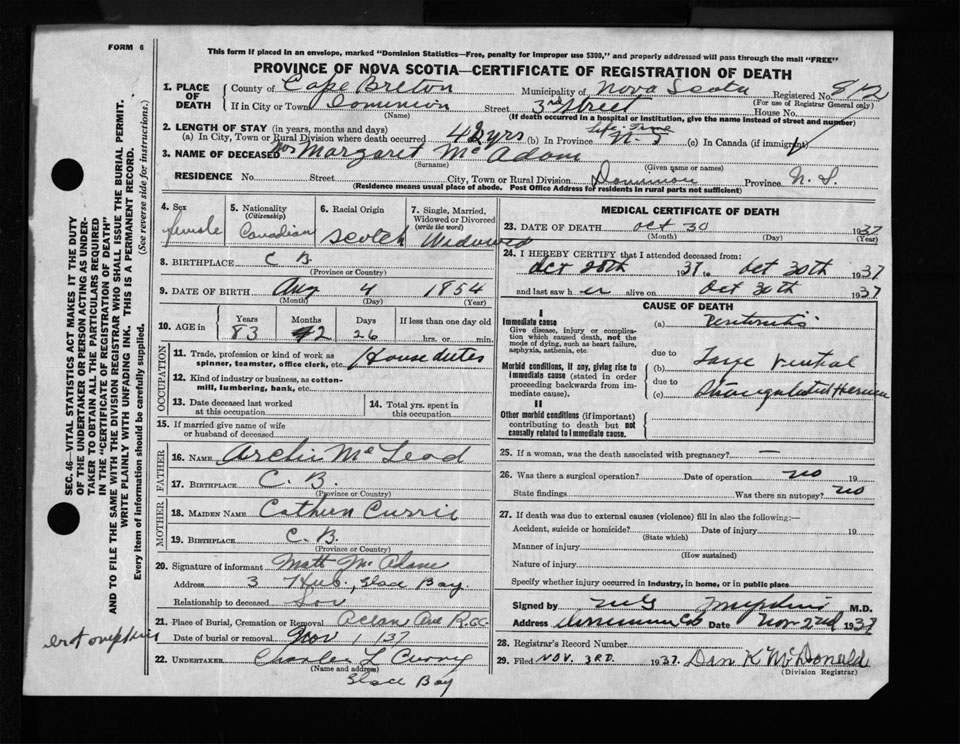 FORM 6
This form if placed in an envelope, marked "Dominion Statistics—Free, penalty for improper use $300," and properly addressed will pass through the mail "FREE"
PROVINCE OF NOVA SCOTIA—CERTIFICATE OF REGISTRATION OF DEATH
1. PLACE OF DEATH
County of Cape Breton Municipality of Nova Scotia Registered No. 812
(For use of Registrar General only)
If in City or Town Dominion Street 3rd Street House No.
(Name) (If death occurred in a hospital or institution, give the name instead of street and number)
2. LENGTH OF STAY (in years, months and days)
(a) In City, Town or Rural Division where death occurred 42 yrs (b) In Province Life Time N.S (c) In Canada (if immigrant)
3. NAME OF DECEASED Mrs Margaret McAdam
(Surname) (Given name or names)
RESIDENCE No. Street City, Town or Rural Division Dominion Province N.S.
(Residence means usual place of abode. Post Office Address for residents in rural parts not sufficient)
4. Sex female
5. Nationality (Citizenship) Canadian
6. Racial Origin Scotch
7. Single, Married, Widowed or Divorced (write the word) Widowed
8. BIRTHPLACE C B.
(Province or Country)
9. DATE OF BIRTH Aug 4 1854
(Month) (Day) (Year)
10. AGE in Years 83 Months 2 Days 26 If less than one day old hrs. or min.
OCCUPATION
11. Trade, profession or kind of work as spinner, teamster, office clerk, etc. House duties
12. Kind of industry or business, as cotton-mill, lumbering, bank, etc.
13. Date deceased last worked at this occupation
14. Total yrs. spent in this occupation
15. If married give name of wife or husband of deceased
FATHER
16. NAME Archie McLeod
17. BIRTHPLACE C.B.
(Province or Country)
MOTHER
18. MAIDEN NAME Cathern Currie
19. BIRTHPLACE C.B.
(Province or Country)
20. Signature of informant Matt McAdam
Address 3 Hub, Glace Bay.
Relationship to deceased Son
21. Place of Burial, Cremation or Removal Ocean Ave R.GC.
Date of burial or removal Nov 1 /37
22. UNDERTAKER Charles L Curry
(Name and address)
Glace Bay
MEDICAL CERTIFICATE OF DEATH
23. DATE OF DEATH Oct 30 1937
(Month) (Day) (Year)
24. I HEREBY CERTIFY that I attended deceased from:
Oct 28th 1937 to Oct 30th 1937
and last saw h er alive on Oct 30th 1937
CAUSE OF DEATH
I
Immediate cause
Give disease, injury or complication which caused death, not the mode of dying, such as heart failure, asphyxia, asthenia, etc.
(a) Peritonitis
due to
Morbid conditions, if any, giving rise to immediate cause (stated in order proceeding backwards from immediate cause).
(b) Large ventral
due to
(c) Strangulated Hernia
II
Other morbid conditions (if important) contributing to death but not causally related to immediate cause.
25. If a woman, was the death associated with pregnancy? —
26. Was there a surgical operation? Date of operation no 19
State findings Was there an autopsy? no
27. If death was due to external causes (violence) fill in also the following:—
Accident, suicide or homicide? Date of injury 19
(State which)
Manner of injury
(How sustained)
Nature of injury
Specify whether injury occurred in industry, in home, or in public place
Signed by M.D.
Address Dominion CB Date Nov 2nd 1937
28. Registrar's Record Number
29. Filed NOV. 3RD. 1937. Dan K McDonald
(Division Registrar)
SEC. 46—VITAL STATISTICS ACT MAKES IT THE DUTY
OF THE UNDERTAKER OR PERSON ACTING AS UNDER-
TAKER TO OBTAIN ALL THE PARTICULARS REQUIRED
IN THE "CERTIFICATE OF REGISTRATION OF DEATH"
AND TO FILE THE SAME WITH THE DIVISION REGISTRAR WHO SHALL ISSUE THE BURIAL PERMIT.
WRITE PLAINLY WITH UNFADING INK. THIS IS A PERMANENT RECORD.
Every item of information should be carefully supplied. (See reverse side for instructions.)